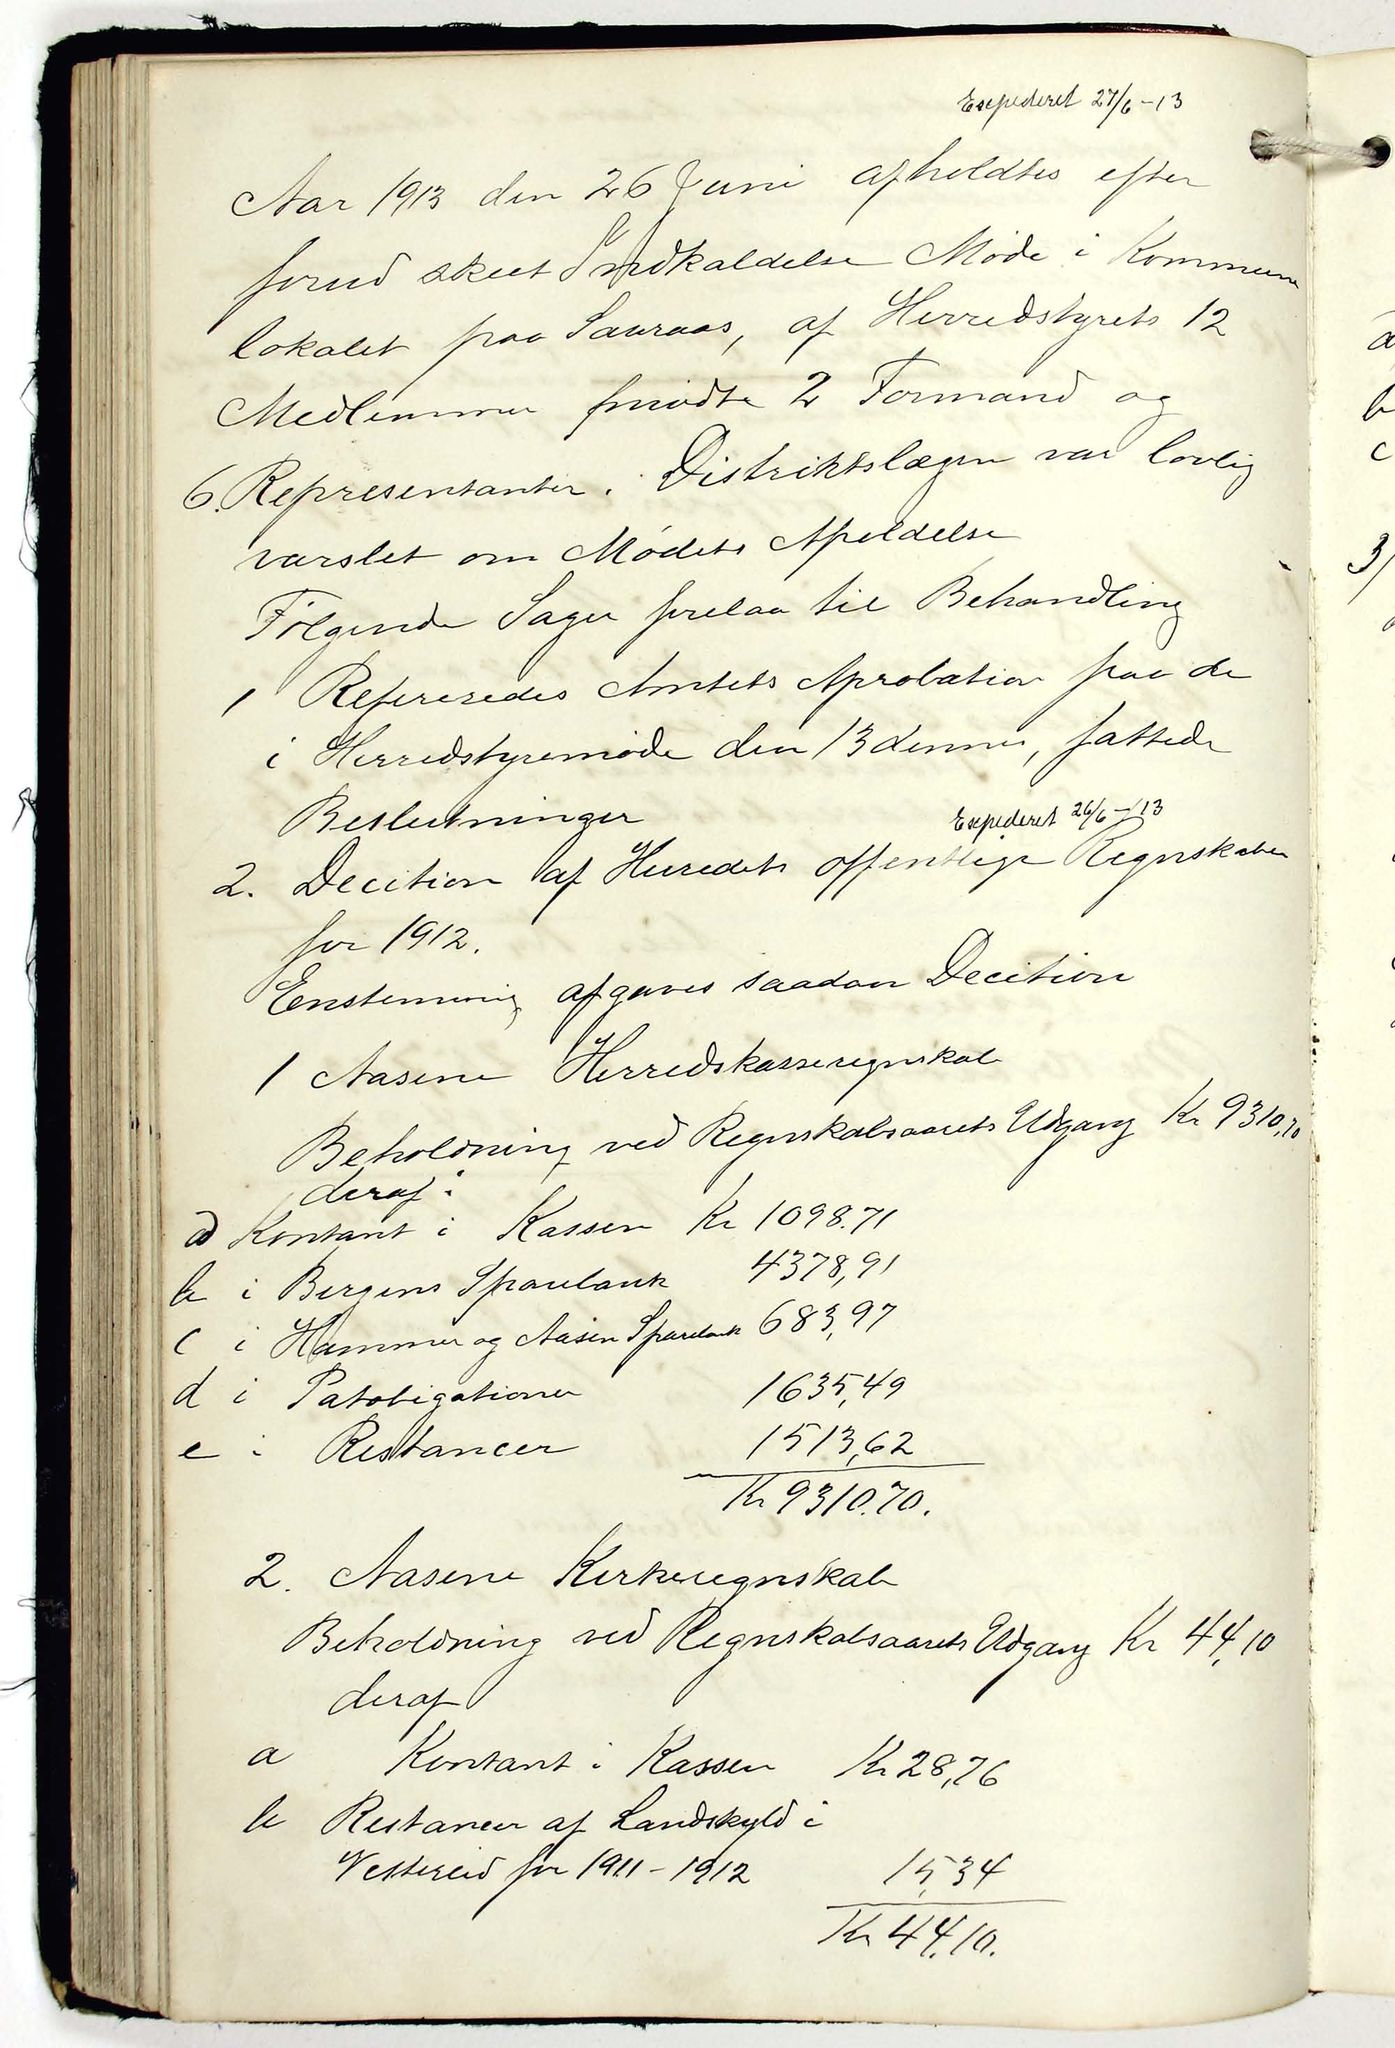 Expederet 27/6-13
Aar 1913 den 26 Juni afholdtes efter
forud skeet Indkaldelse Møde i Kommune
lokalet paa Sauraas, af Herredstyrets 12
Medlemmer fmødte 2 Formænd og
6. Representanter. Distriktslægen var lovlig
varslet om Mødets Afholdelse
Følgende Sager forelaa til Behandling
1 Refereredes Amtets Aprobation paa de
i Herredstyremøde den 13 dennes, fattede
Beslutninger
Expederet 26/6-13
2. Decition af Herredets offentlige Regnskaber
for 1912.
Enstemmig afgaves saadan Decition
1 Aasene Herredskasseregnskab
Beholdning ved Regnskabsaarets Udgang Kr 9310,70
deraf:
a Kontant i Kassen Kr 1098.71
b i Bergens Sparebank 4378,91
c i Hammer og Aasen Sparebank 683,97
d i Patobigationer 1635,49
e i Restancer 1513,62
Kr 9310.70.
2. Aasene Kirkeregnskab
Beholdning ved Regnskabsaarets Udgang Kr 44,10
deraf
a Kontant i Kassen Kr 28,76
b Restancer af Landskyld i
Vestereid for 1911-1912 15,34
Kr 44,10.
a
b
c
3/